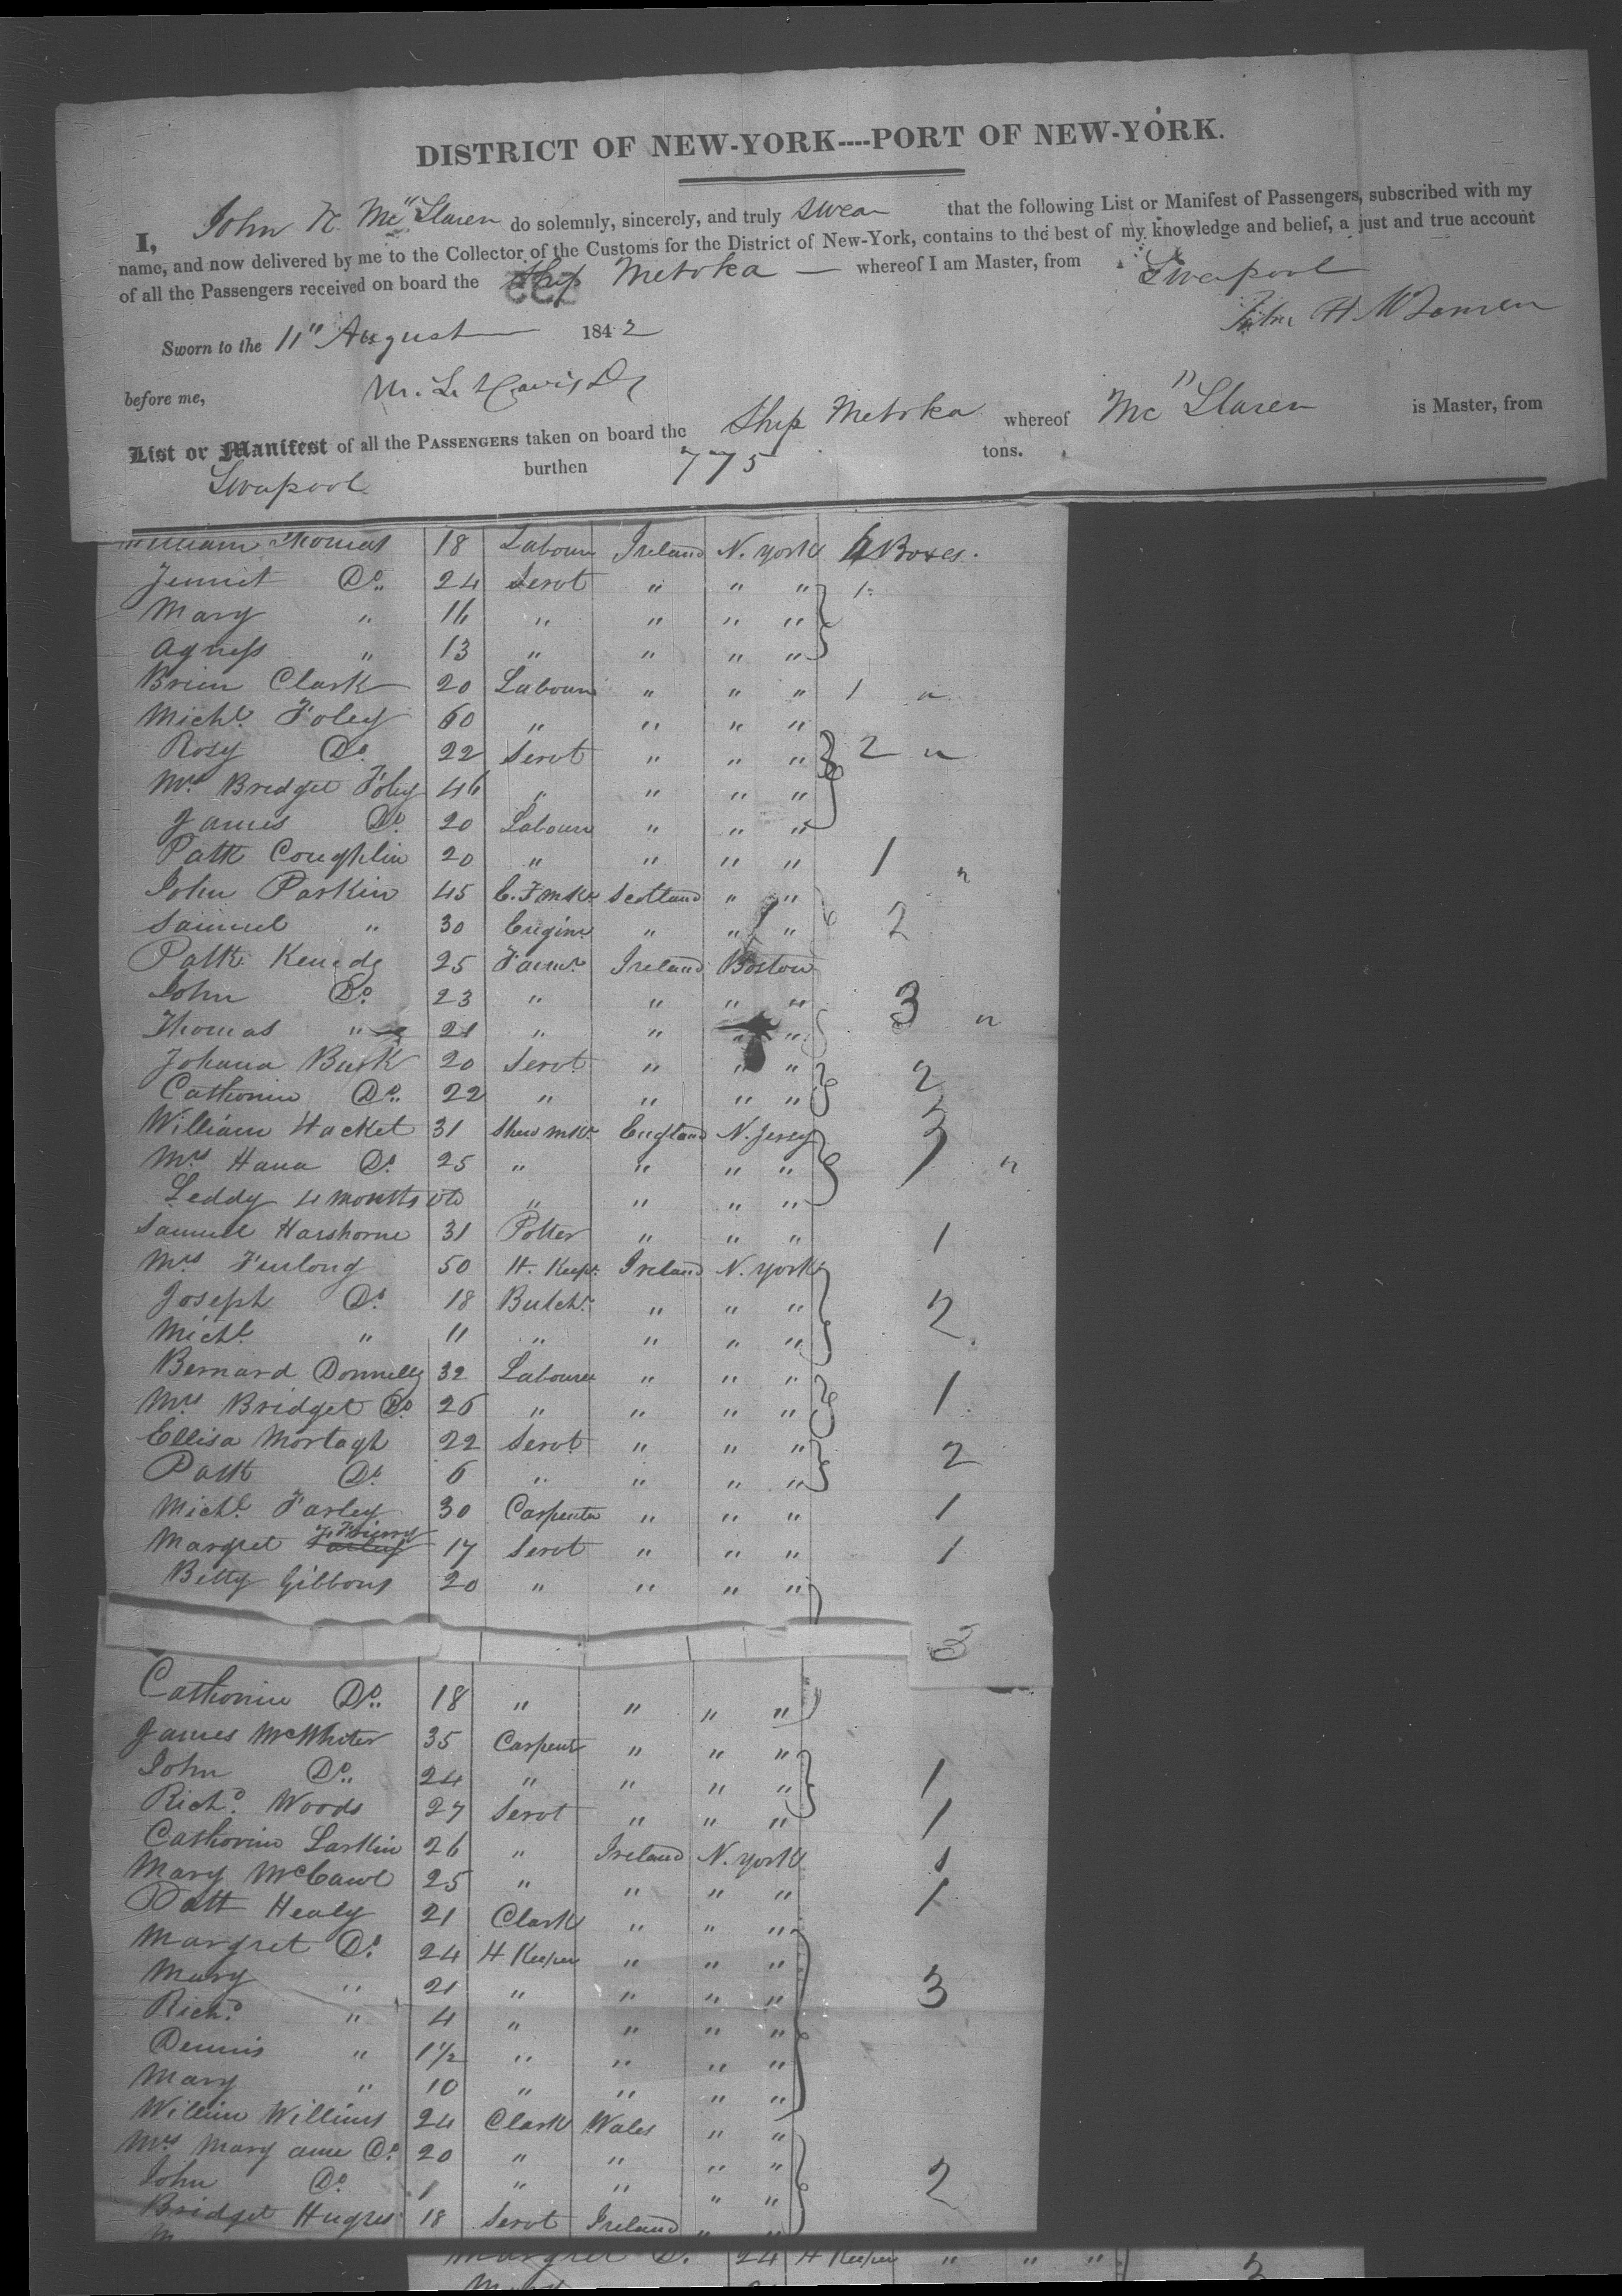 DISTRICT OF NEW-YORK----PORT OF NEW-YORK.
I, John H. Mc"Llaren do solemnly, sincerely, and truly swear that the following List or Manifest of Passengers, subscribed with my
name, and now delivered by me to the Collector of the Customs for the District of New-York, contains to the best of my knowledge and belief, a just and true account
of all the Passengers received on board the Ship Metoka — whereof I am Master, from Liverpool
John H McLaren
Sworn to the 11" August 1842
before me,
List or Manifest of all the PASSENGERS taken on board the Ship Metoka whereof Mc"Llaren is Master, from
Liverpool burthen 775 tons.
William Thomas 18 Labour Ireland N. York Boxes
Jennit Do. 24 Servt " " " 1
Mary " 16 " " " "
Agness " 13 " " " "
Brien Clark 20 Labour " " " 1 "
Michl. Foley 60 " " " "
Rosy Do. 22 Servt " " " 2 "
Mrs Bridget Foley 46 " " " "
James Do. 20 Labour " " "
Patk Coughlin 20 " " " " 1 "
John Parkin 45 Scotland " "
Samuel " 30 Enginr " " " 2
Patk Kenedy 25 Farmr Ireland Boston
John Do. 23 " " " " 3 "
Thomas " 21 " " " "
Johana Burk 20 Servt " " " 2
Catherine Do. 22 " " " "
William Hacket 31 Shew mkr England N. Jersy
Mrs Hana Do. 25 " " " " "
Leddy 4 months old " " " "
Samuel Harshorne 31 Potter " " " 1
Mrs Furlong 50 H. Keepr Ireland N. York
Joseph Do. 18 Butchr " " " 2
Michl. " 11 " " " "
Bernard Donnelly 32 Labourer " " " 1
Mrs Bridget Do. 26 " " " "
Ellisa Mortagh 22 Servt " " " 2
Patk Do. 6 " " " "
Michl. Farley 30 Carpenter " " " 1
Margret 17 Servt " " " 1
Betty Gibbons 20 " " " "
3
Catherine Do. 18 " " " "
James McWhiter 35 Carpentr " " "
John Do. 24 " " " " 1
Richd. Woods 27 Servt " " " 1
Catherine Larkin 26 " Ireland N. York 1
Mary McCawl 25 " " " " 1
Patt Healy 21 Clark " " "
Margret Do. 24 H Keeper " " "
Mary " 21 " " " " 3
Richd. " 4 " " " "
Dennis " 1½ " " " "
Mary " 10 " " " "
Willim Willims 24 Clark Wales " "
Mrs Mary ann Do. 20 " " " "
John Do. 1 " " " " 2
Bridget Hugres 18 Servt Ireland " "
Margret D. 24 H Keeper " " " 3